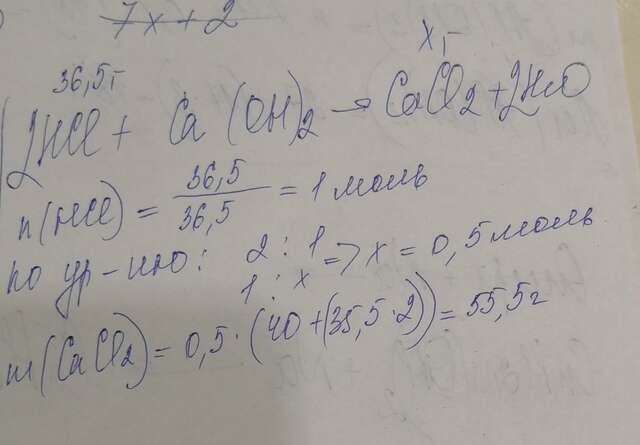 7x+2
x г
36,5г
2HCl + Ca(OH)2 → CaCl2 + 2H2O
n(HCl) = 36,5 / 36,5 = 1 моль
по ур-ию: 2 : 1
1 : x => x = 0,5 моль
m(CaCl2) = 0,5 · (40 + (35,5 · 2)) = 55,5г